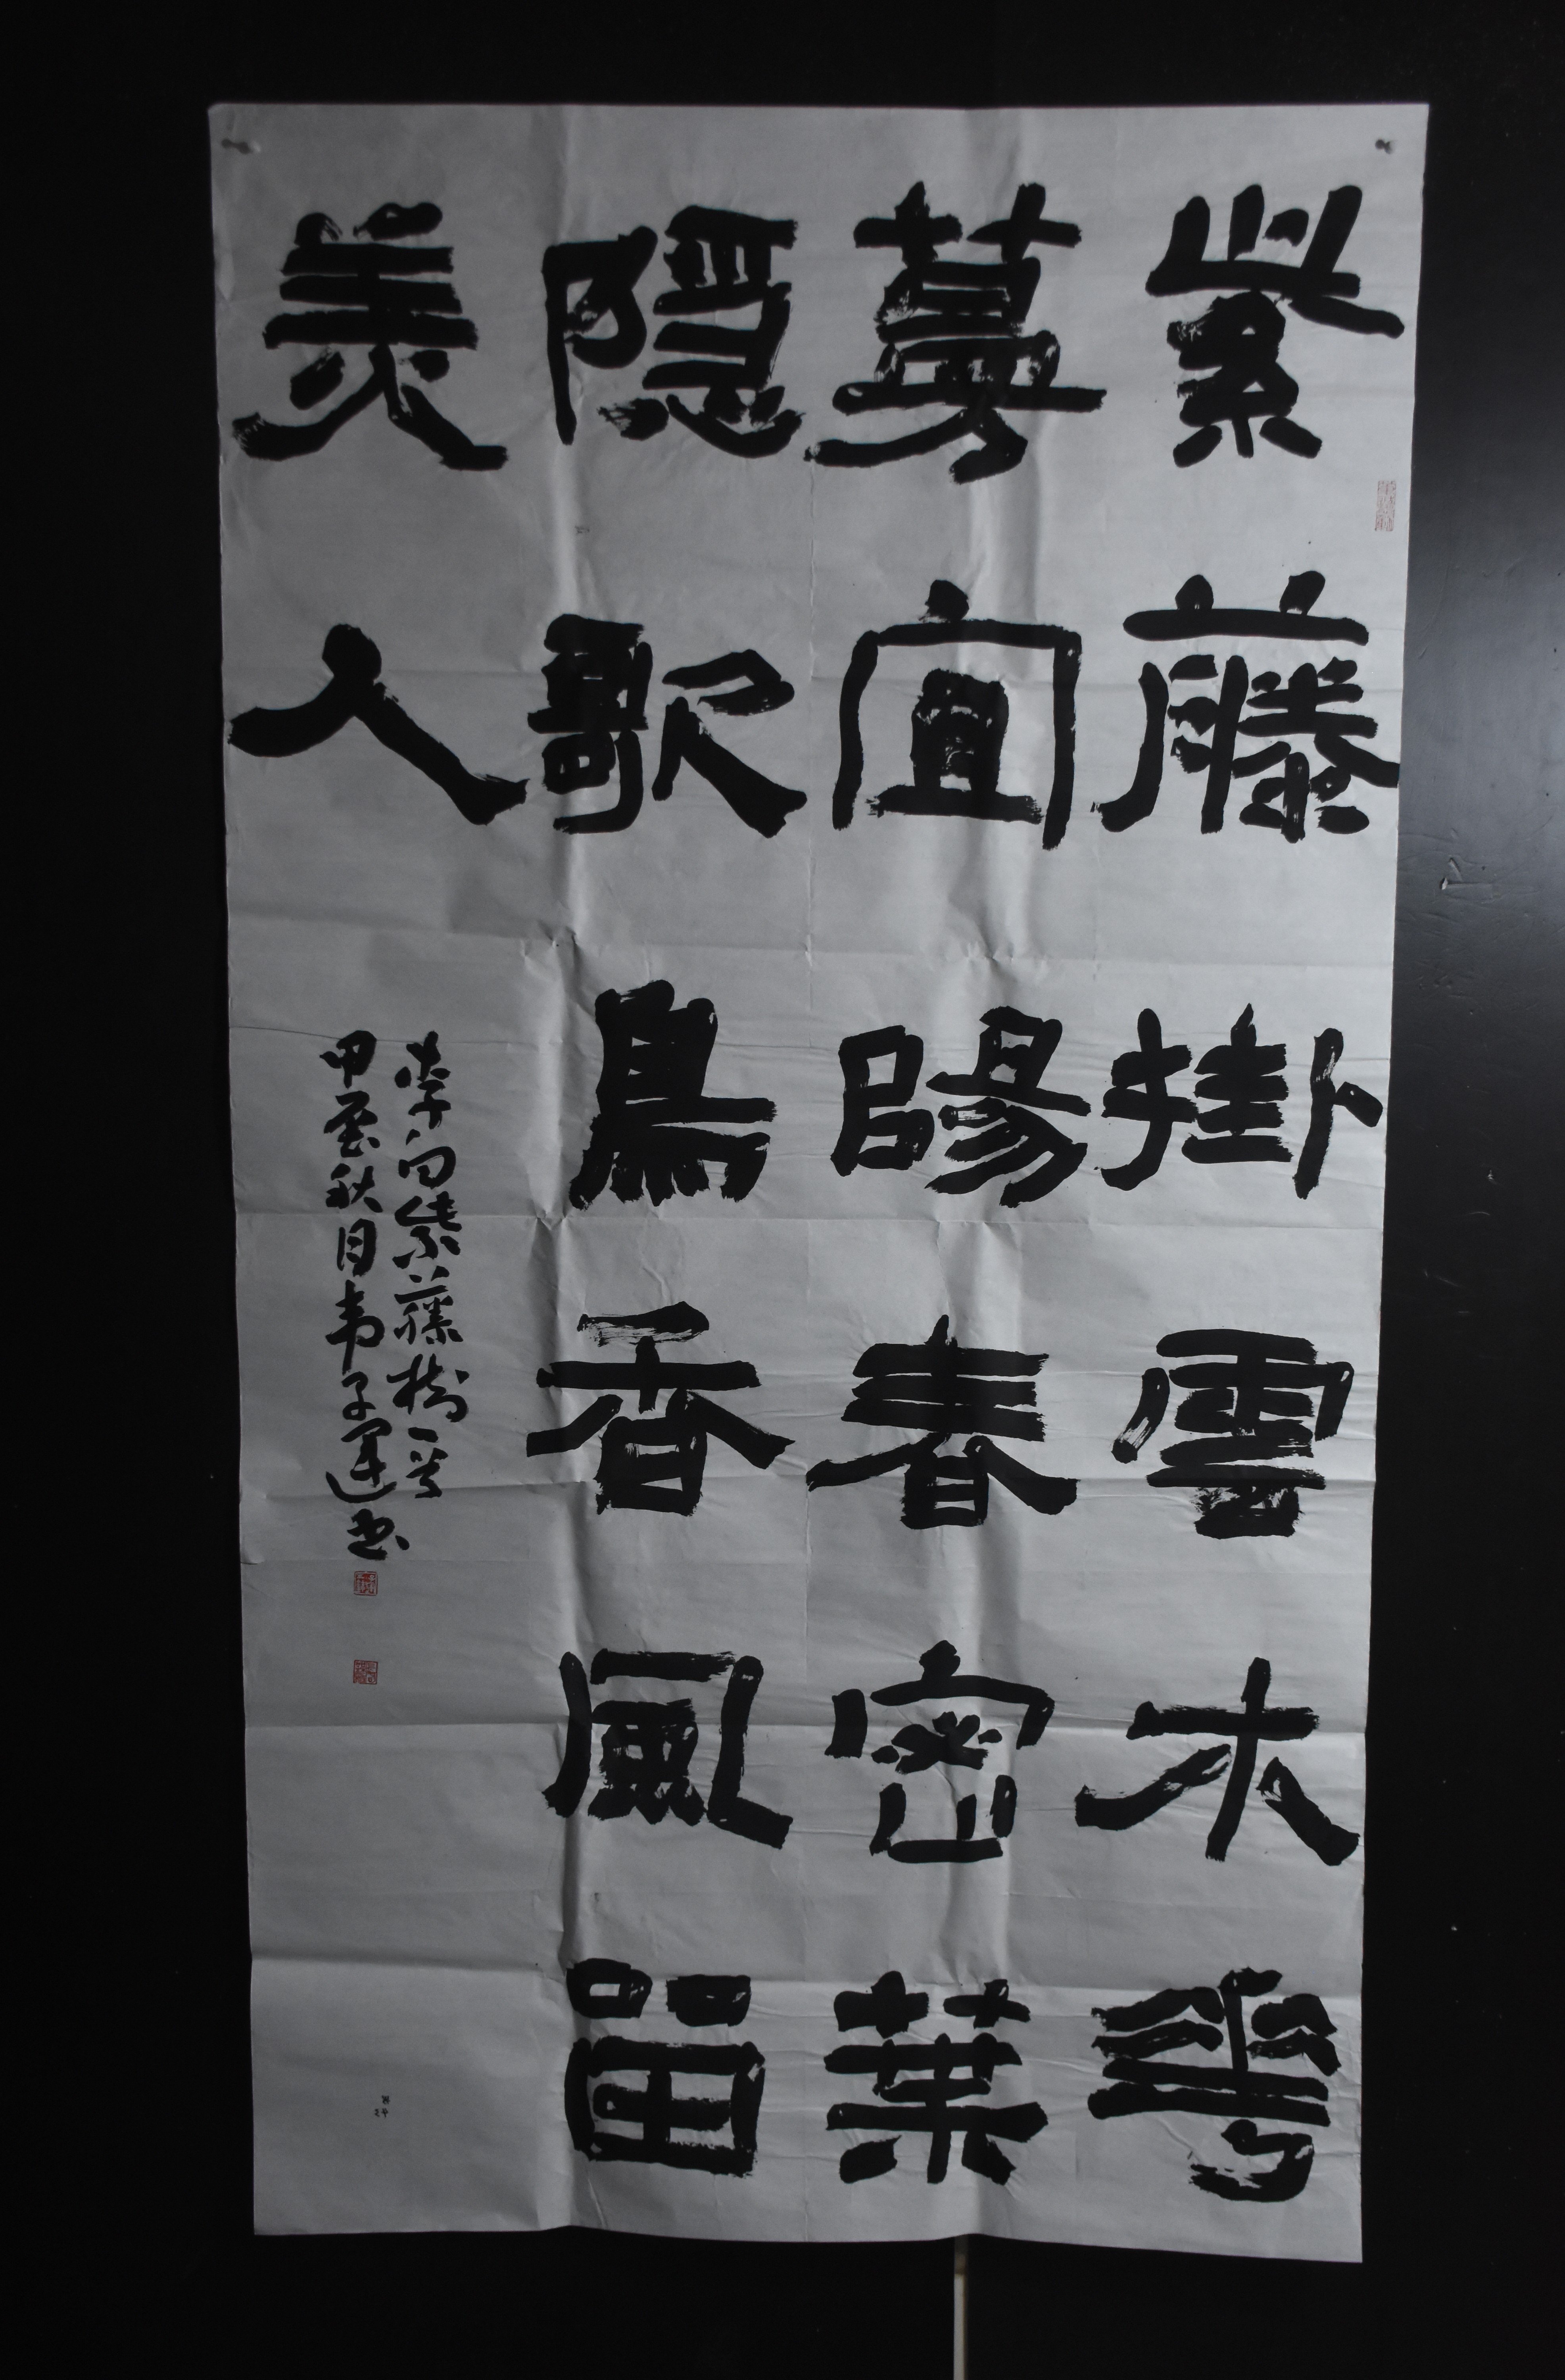 紫藤掛雲木華
蔓宜陽春密葉
隱歌鳥香風留
美人
李白紫藤樹一首
甲辰秋月韦子運书